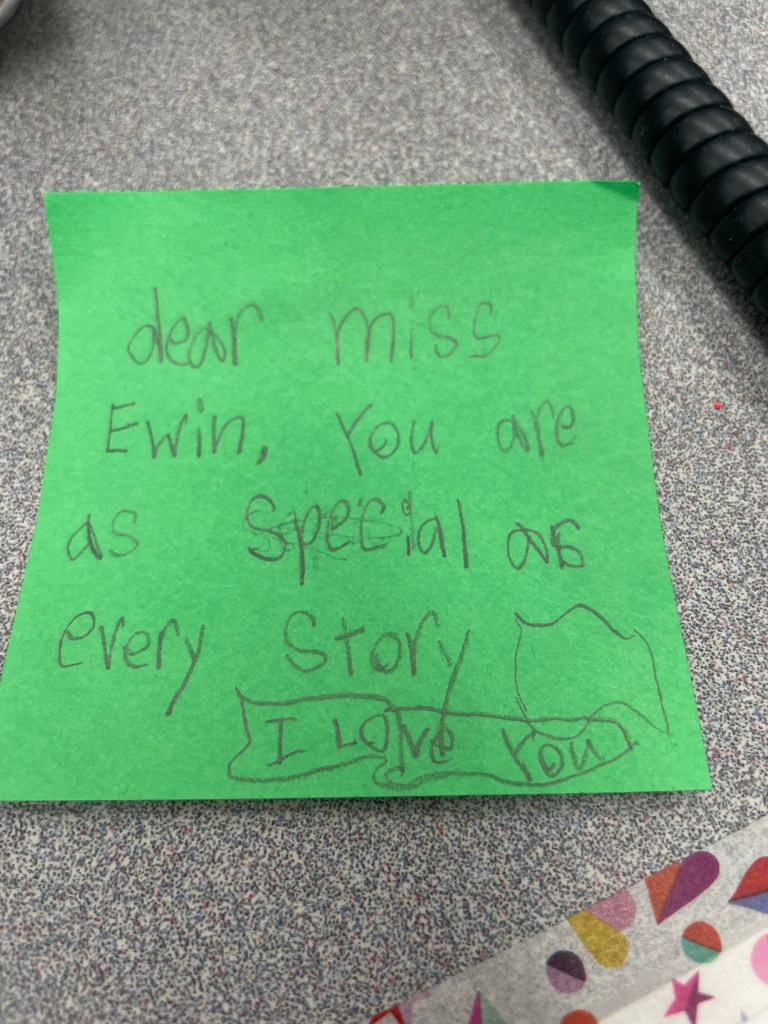 dear miss
Ewin, You are
as special as
every Story
I Love You